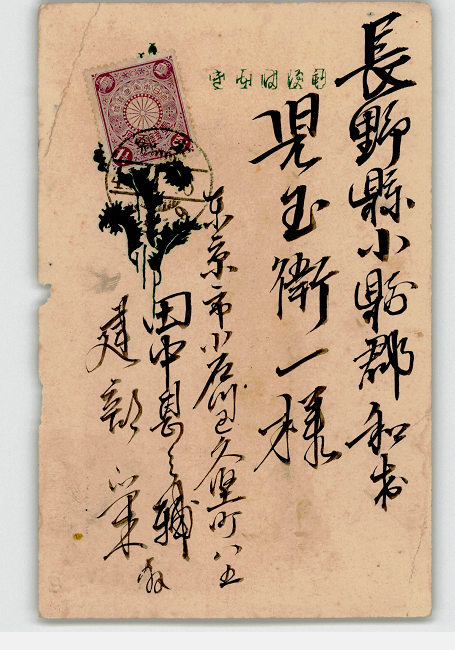 長野縣小縣郡和村
児玉衛一様
東京市小石川区久堅町八五
田中甚之輔
建部